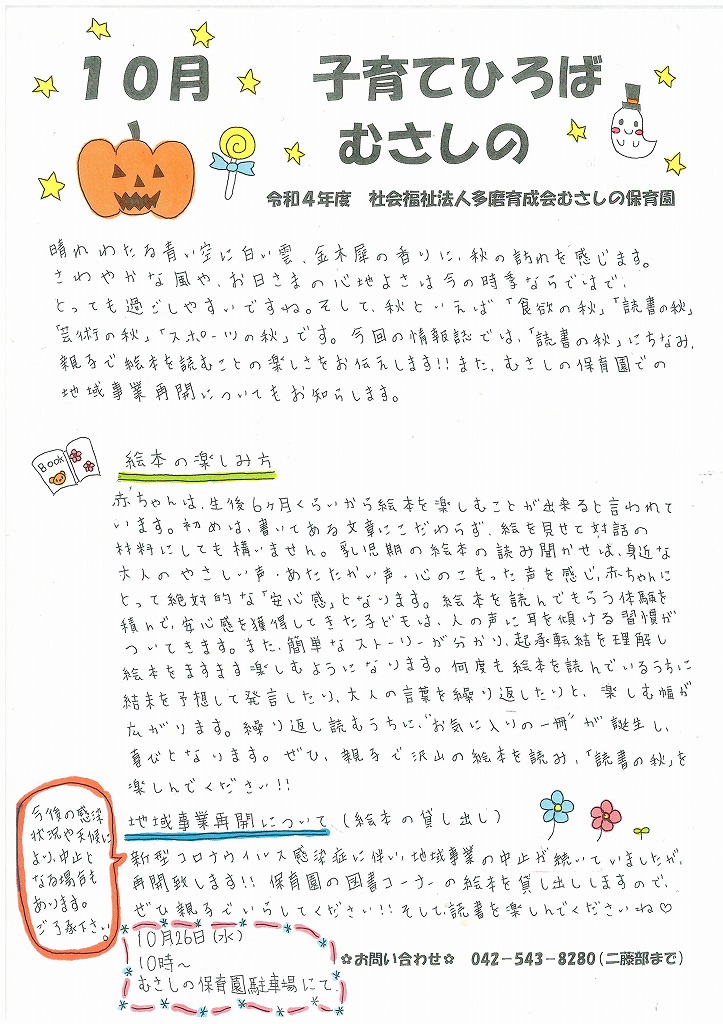 10月 子育てひろば
むさしの
令和4年度 社会福祉法人多磨育成会むさしの保育園
晴れわたる青い空に白い雲、金木犀の香りに、秋の訪れを感じます。
さわやかな風や、お日さまの心地よさは今の時季ならではで、
とっても過ごしやすいですね。そして、秋といえば「食欲の秋」「読書の秋」
「芸術の秋」「スポーツの秋」です。今回の情報誌では、「読書の秋」にちなみ、
親子で絵本を読むことの楽しさをお伝えします!!また、むさしの保育園での
地域事業再開についてもお知らします。
Book
絵本の楽しみ方
赤ちゃんは、生後6ヶ月くらいから絵本を楽しむことが出来ると言われて
います。初めは、書いてある文章にこだわらず、絵を見せて対話の
材料にしても構いません。乳児期の絵本の読み聞かせは、身近な
大人のやさしい声・あたたかい声・心のこもった声を感じ、赤ちゃんに
とって絶対的な「安心感」となります。絵本を読んでもらう体験を
積んで、安心感を獲得してきた子どもは、人の声に耳を傾ける習慣が
ついてきます。また、簡単なストーリーが分かり、起承転結を理解し
絵本をますます楽しむようになります。何度も絵本を読んでいるうちに
結末を予想して発言したり、大人の言葉を繰り返したりと、楽しむ幅が
広がります。繰り返し読むうちに、"お気に入りの一冊"が誕生し、
喜びとなります。ぜひ、親子で沢山の絵本を読み、「読書の秋」を
楽しんでください!!
地域事業再開について(絵本の貸し出し)
新型コロナウイルス感染症に伴い、地域事業の中止が続いていましたが、
再開致します!!保育園の図書コーナーの絵本を貸し出ししますので、
ぜひ親子でいらしてください!!そして、読書を楽しんでくださいね♡
今後の感染
状況や天候に
より、中止と
なる場合も
あります。
ご了承下さい。
10月26日(水)
10時~
むさしの保育園駐車場にて
✿お問い合わせ✿ 042-543-8280(二藤部まで)